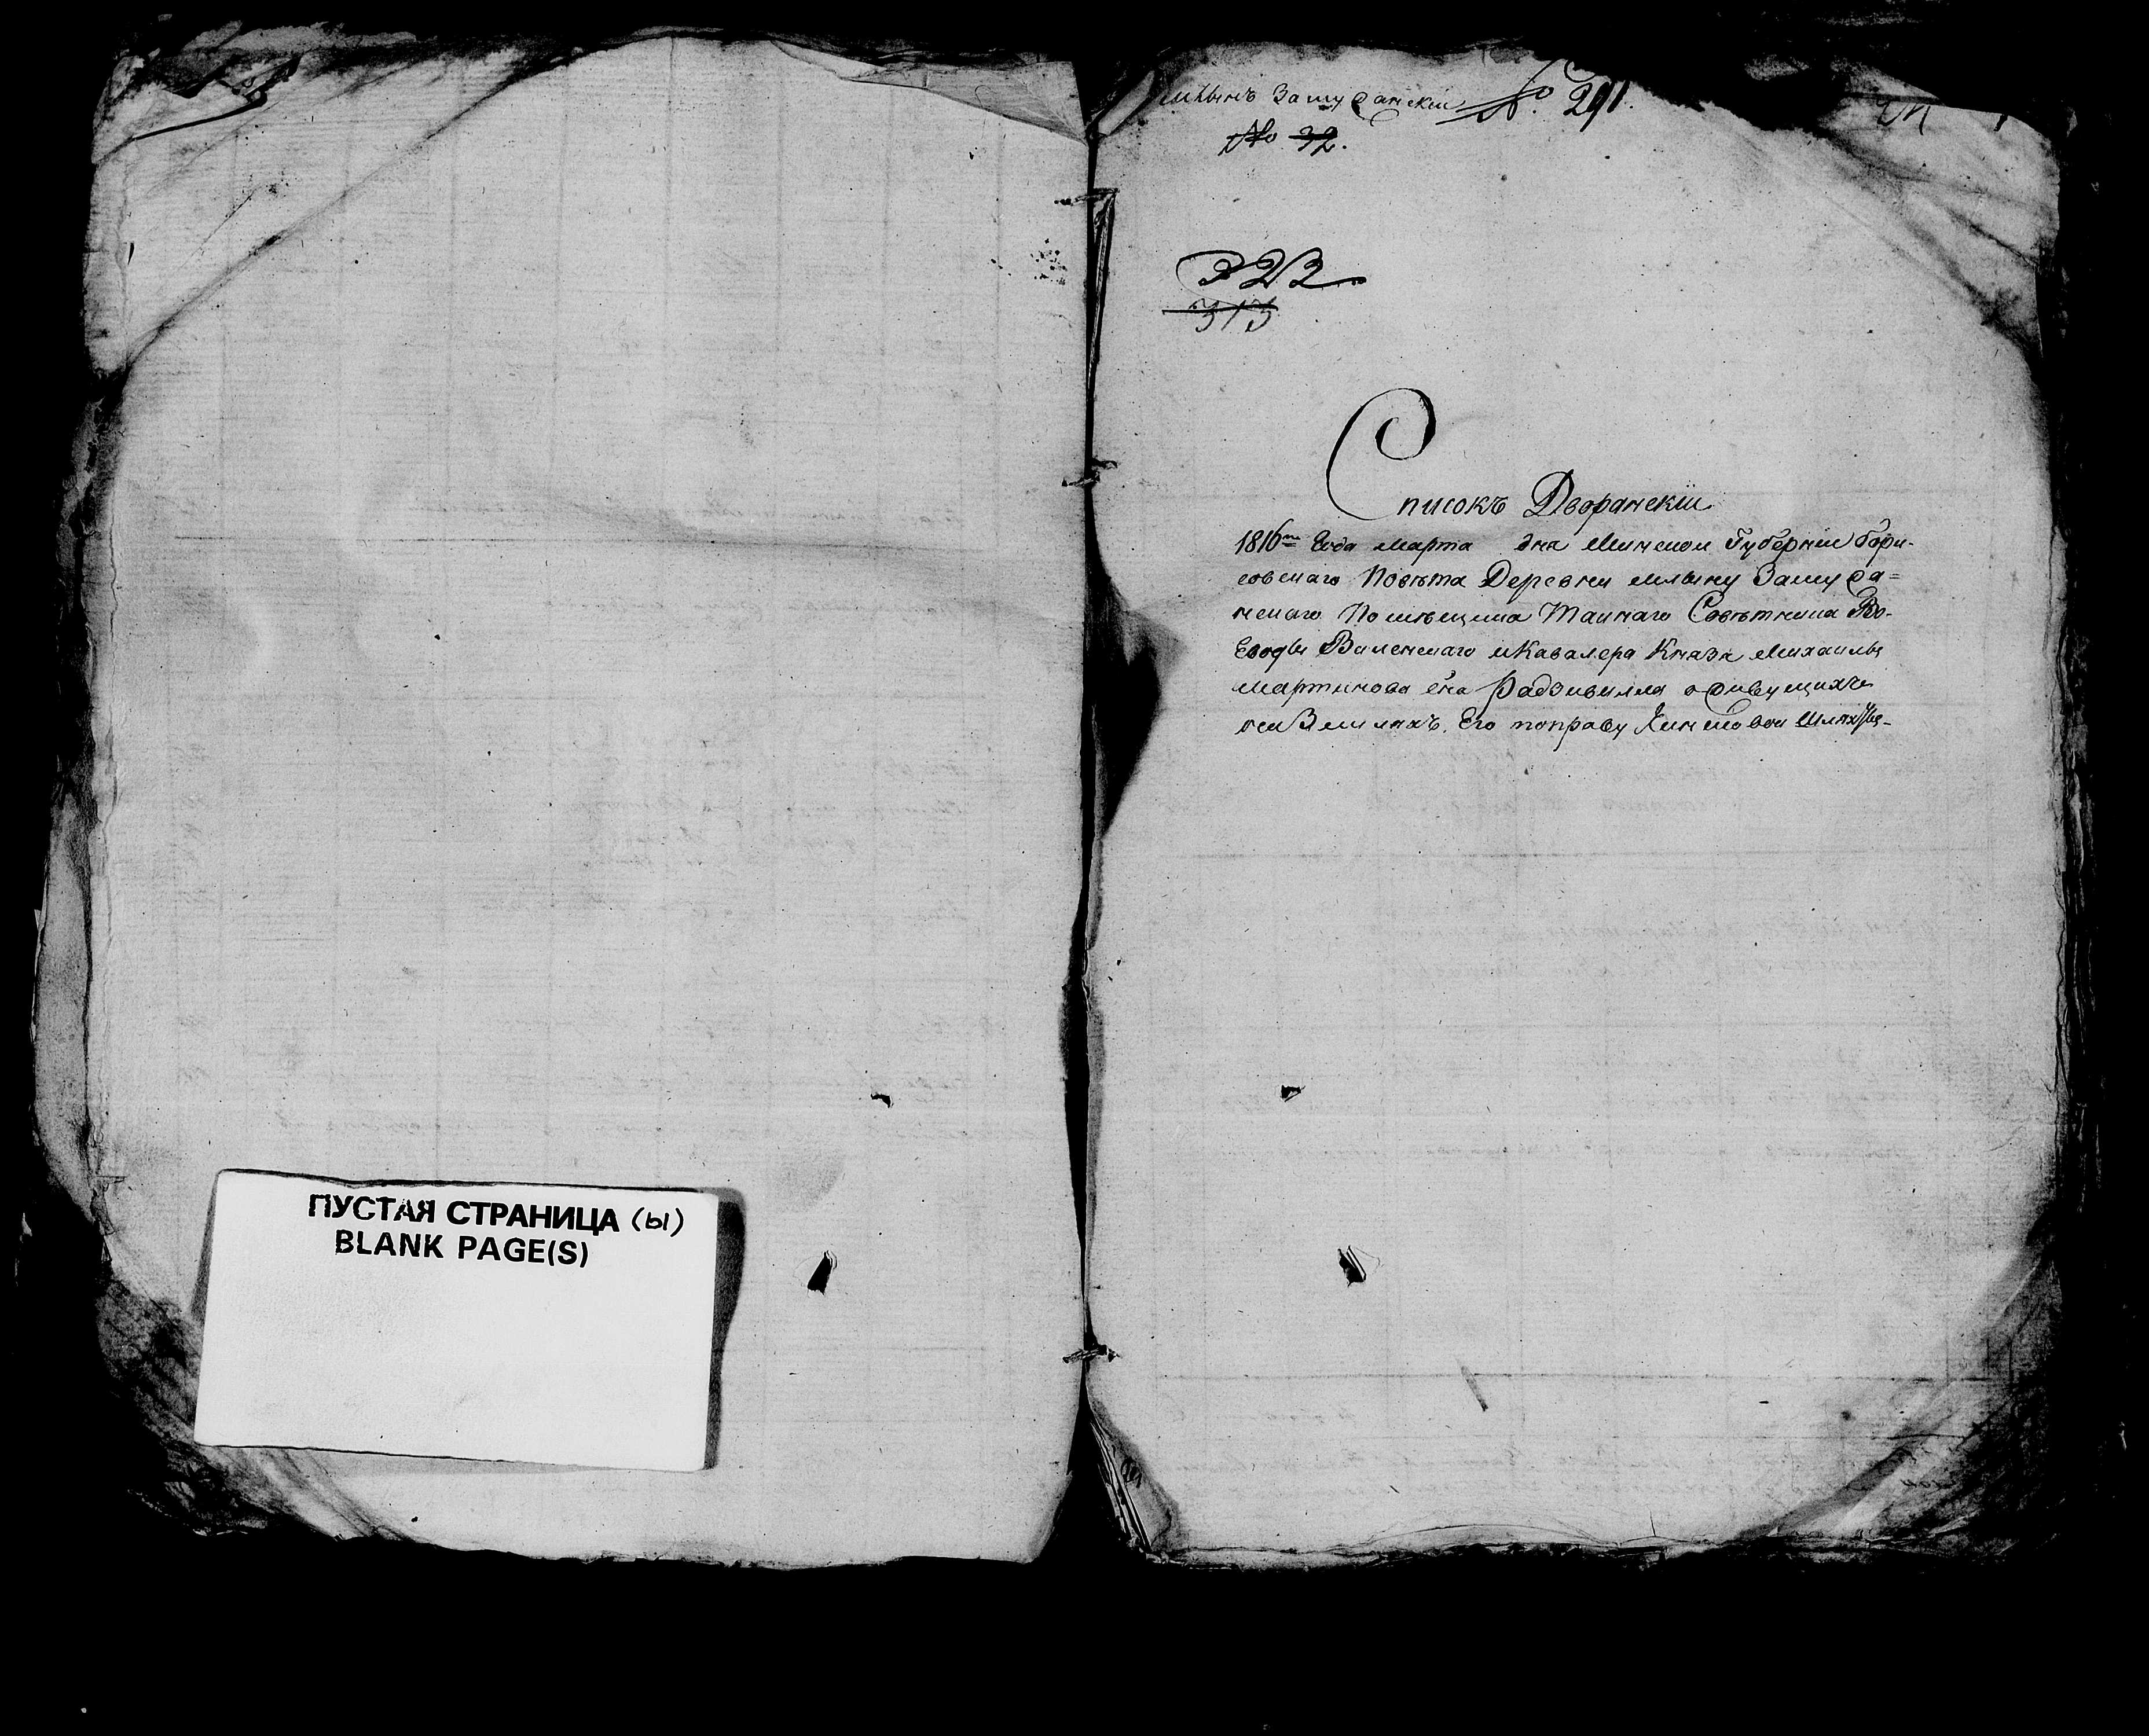 ПУСТАЯ СТРАНИЦА (ы)
BLANK PAGE(S)
млынъ № 291.
№ 32.
322
313
Списокъ Дворянскіи
1816го Года марта дня Минской Губерніи Бори-
совскаго Повѣта Деревни млыну
Помѣщика Таинаго Совѣтника Во-
Еводы Виленскаго и Кавалера Князя Михаилы
Мартинова сна Радзивилла о живущихъ
на Земляхъ Его поправу Чиншовои Шляхты